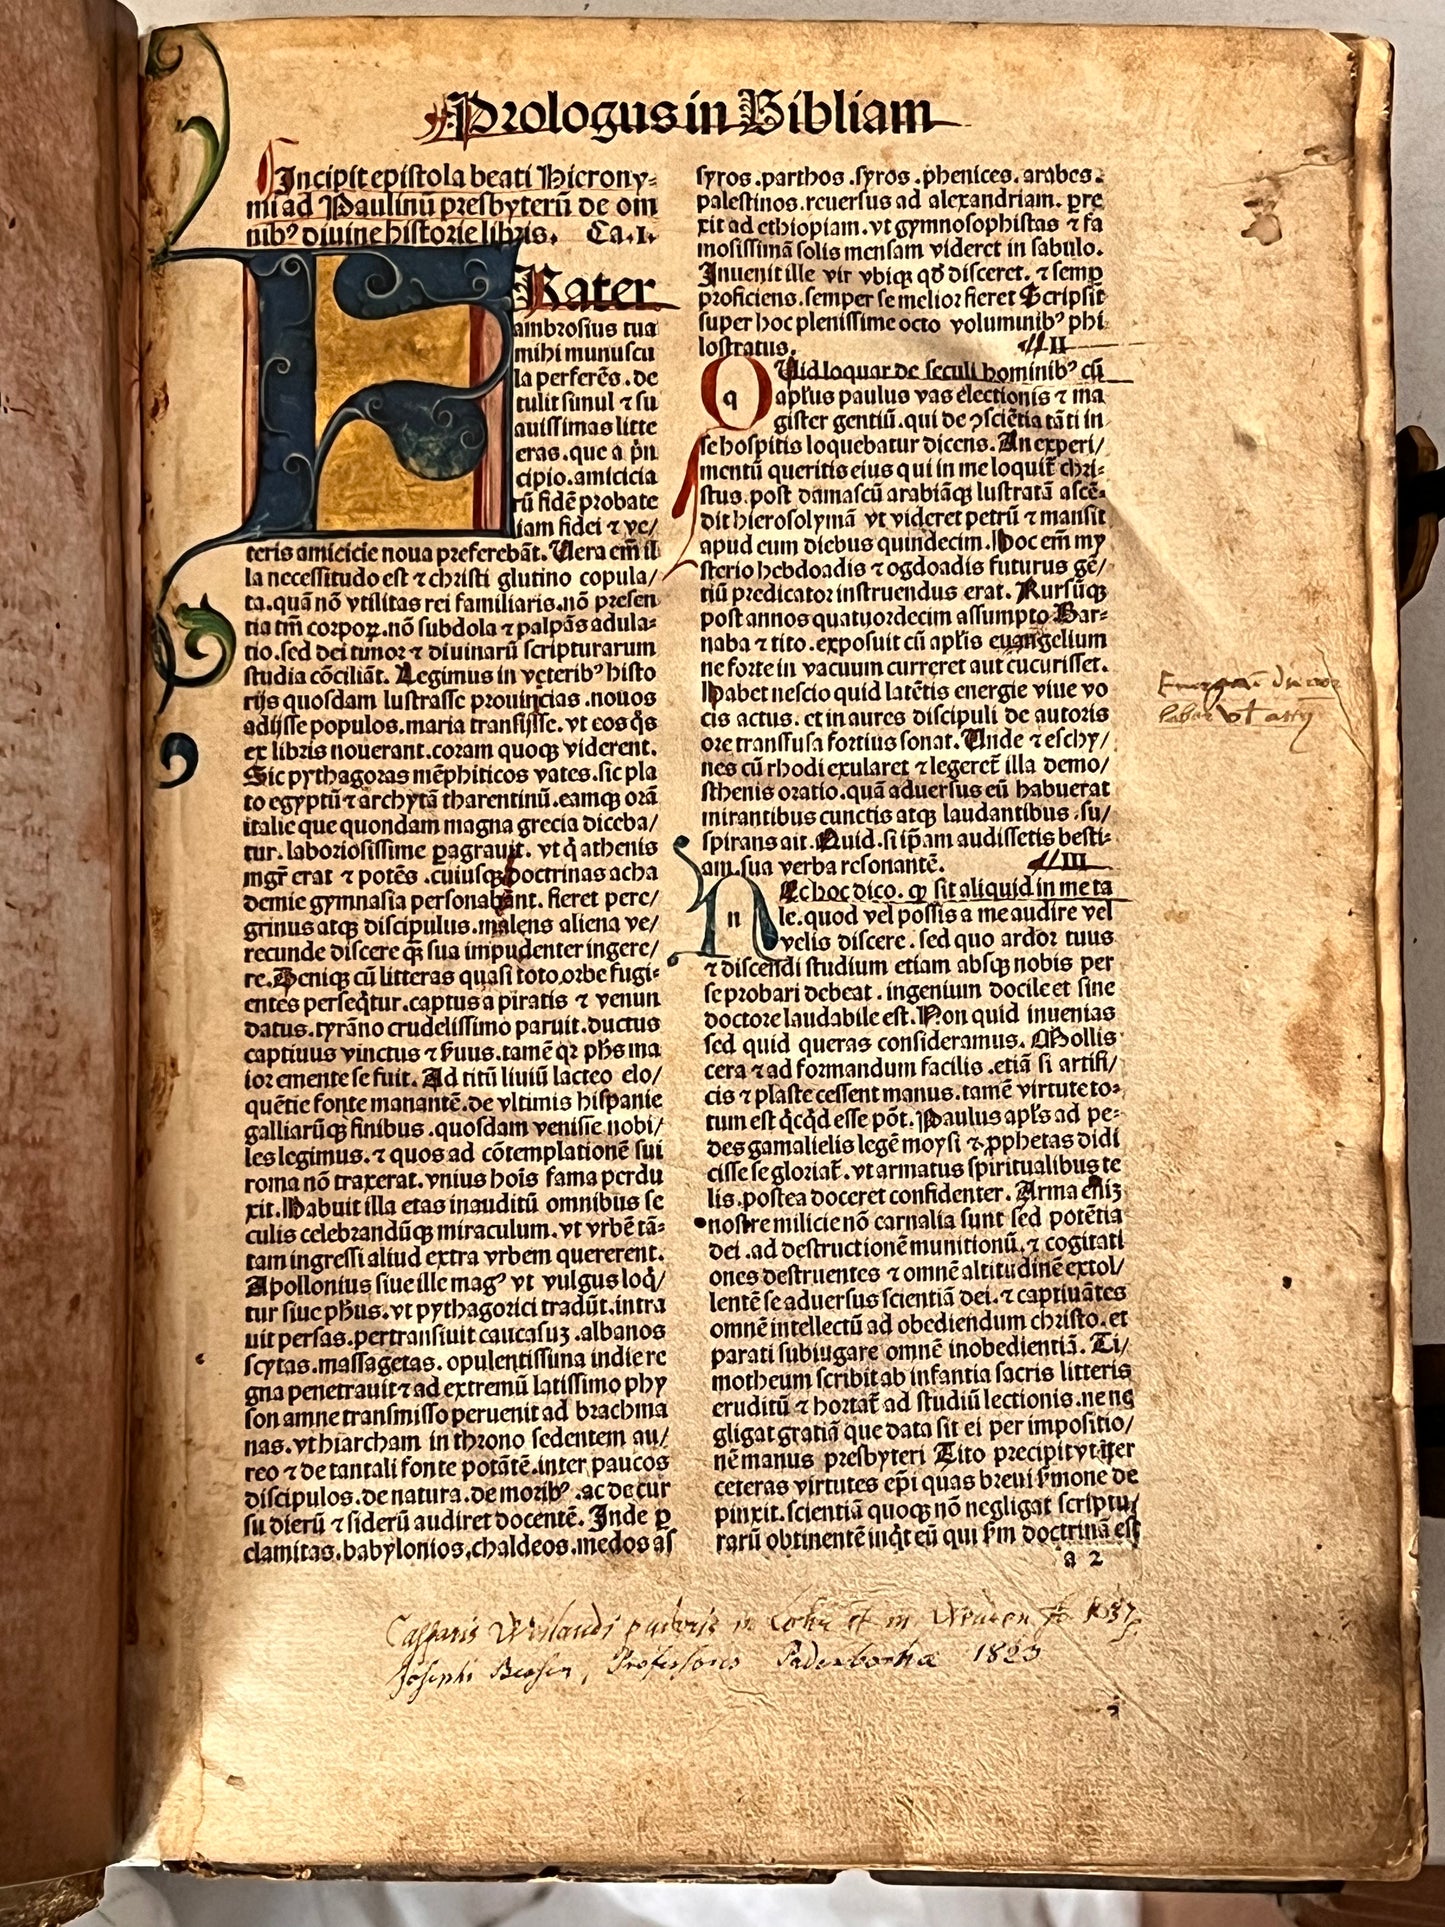 Prologus in Bibliam
Incipit epistola beati Hierony⸗
mi ad Paulinū presbyterū de om
nibꝰ diuine historie libris. Ca.I.
FRater
ambrosius tua
mihi munuscu
la perferēs.de
tulit simul ⁊ su
auissimas litte
eras.que a p̄n
cipio.amicicia
rū fidē probate
iam fidei ⁊ ve/
teris amicicie noua preferebāt. Uera em̄ il
la necessitudo est ⁊ christi glutino copula/
ta.quā nō vtilitas rei familiaris.nō presen
tia tm̄ corpoꝝ.nō subdola ⁊ palpās adula⸗
tio.sed dei timor ⁊ diuinarū scripturarum
studia cōciliāt. Legimus in veteribꝰ histo
rijs quosdam lustrasse prouincias.nouos
adijsse populos.maria transijsse.vt eos q̄s
ex libris nouerant.coram quoqꝫ viderent.
Sic pythagoras mēphiticos vates.sic pla
to egyptū ⁊ archytā tharentinū.eamqꝫ orā
italie que quondam magna grecia diceba/
tur.laboriosissime ꝑagrauit. vt q̄ athenis
mgr̄ erat ⁊ potēs.cuiusqꝫ doctrinas acha
demie gymnasia personabant. fieret pere/
grinus atqꝫ discipulus.malens aliena ve/
recunde discere qꝫ̄ sua impudenter ingere/
re.Deniqꝫ cū litteras quasi toto orbe fugi⸗
entes perseq̄tur.captus a piratis ⁊ venun
datus.tyrāno crudelissimo paruit.ductus
captiuus vinctus ⁊ s̄uus.tamē qꝛ ph̄s ma
ior emente se fuit. Ad titū liuiū lacteo elo/
quētie fonte manantē.de vltimis hispanie
galliarūqꝫ finibus.quosdam venisse nobi/
les legimus.⁊ quos ad cōtemplationē sui
roma nō traxerat.vnius hois̄ fama perdu
xit.Habuit illa etas inauditū omnibus se
culis celebrandūqꝫ miraculum.vt vrbē tā⸗
tam ingressi aliud extra vrbem quererent.
Apollonius siue ille magꝰ vt vulgus loq̄/
tur siue ph̄us.vt pythagorici tradūt.intra
uit persas.pertransiuit caucasuꝫ.albanos
scytas.massagetas. opulentissima indie re
gna penetrauit ⁊ ad extremū latissimo phy
son amne transmisso peruenit ad brachma
nas.vt hiarcham in throno sedentem au/
reo ⁊ de tantali fonte potātē.inter paucos
discipulos.de natura.de moribꝰ.ac de cur
su dierū ⁊ siderū audiret docentē. Inde ꝑ
elamitas.babylonios,chaldeos.medos as
syros.parthos.syros.phenices.arabes.
palestinos.reuersus ad alexandriam. ꝑre
xit ad ethiopiam.vt gymnosophistas ⁊ fa
mosissimā solis mensam videret in sabulo.
Inuenit ille vir vbiqꝫ qd̄ disceret. ⁊ semꝑ
proficiens.semper se melior fieret Scripsit
super hoc plenissime octo voluminibꝰ phi
lostratus. II
q
QUid loquar de seculi hominibꝰ cū
apl̄us paulus vas electionis ⁊ ma
gister gentiū.qui de ꝯsciētia tāti in
se hospitis loquebatur dicens.An experi/
mentū queritis eius qui in me loquit̄ chri⸗
stus.post damascū arabiāqꝫ lustratā ascē⸗
dit hierosolymā vt videret petrū ⁊ mansit
apud eum diebus quindecim.Hoc em̄ my
sterio hebdoadis ⁊ ogdoadis futurus gē/
tiū predicator instruendus erat. Rursūqꝫ
post annos quatuordecim assumpto Bar⸗
naba ⁊ tito.exposuit cū apl̄is euangelium
ne forte in vacuum curreret aut cucurisset.
Habet nescio quid latētis energie viue vo
cis actus. et in aures discipuli de autoris
ore transfusa fortius sonat. Unde ⁊ eschy/
nes cū rhodi exularet ⁊ legeret̄ illa demo/
sthenis oratio.quā aduersus eū habuerat
mirantibus cunctis atqꝫ laudantibus.su/
spirans ait. Quid.si ip̄am audissetis besti⸗
am.sua verba resonantē. III
n
NEc hoc dico. qꝫ sit aliquid in me ta
le.quod vel possis a me audire vel
velis discere.sed quo ardor tuus
⁊ discendi studium etiam absqꝫ nobis per
se probari debeat. ingenium docile et sine
doctore laudabile est.Non quid inuenias
sed quid queras consideramus. Mollis
cera ⁊ ad formandum facilis.etiā si artifi/
cis ⁊ plaste cessent manus.tamē virtute to⸗
tum est q̄cq̄d esse pōt.Paulus apl̄s ad pe⸗
des gamalielis legē moysi ⁊ ꝓphetas didi
cisse se gloriat̄.vt armatus spiritualibus te
lis.postea doceret confidenter. Arma em̄ꝫ
nostre milicie nō carnalia sunt sed potētia
dei.ad destructionē munitionū.⁊ cogitati
ones destruentes ⁊ omnē altitudinē extol/
lentē se aduersus scientiā dei.⁊ captiuātes
omnē intellectū ad obediendum christo.et
parati subiugare omnē inobedientiā. Ti/
motheum scribit ab infantia sacris litteris
eruditū ⁊ hortat̄ ad studiū lectionis.ne ne
gligat gratiā que data sit ei per impositio/
nē manus presbyteri Tito precipit vt īter
ceteras virtutes ep̄i quas breui s̄mone de
pinxit.scientiā quoqꝫ nō negligat scriptu/
rarū obtinentē inq̄t eū qui s̄m doctrinā est
a 2
Casparis
Josephi Bessen, Professoris Paderbornae 1823